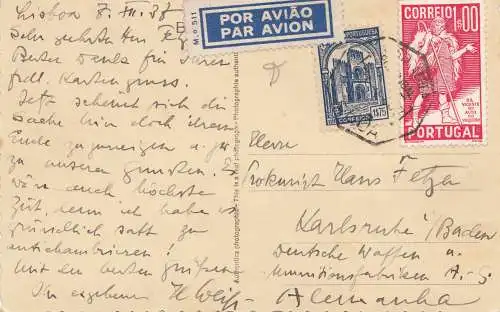 Lisboa 7. III. 38
Sehr geehrter Herr
Besten Dank für Ihren
frdl. Kartengruss.
Jetzt scheint sich die
Sache hier doch ihrem
Ende zuzuneigen u.
zu unseren Gunsten.
wäre auch höchste
Zeit, denn ich habe es
gründlich satt zu
antichambrieren!
Mit den besten Grüßen
Ihr ergebener
POR AVIÃO
PAR AVION
M. 511
PORTUGUESA
CORREIO
1$75
CORREIO 1$00
GIL
VICENTE
NO
AUTO DO
VAQUEIRO
PORTUGAL
Herrn
Prokurist Hans Fetzer
Karlsruhe / Baden
Deutsche Waffen u.
Munitionsfabriken A.-G.
Alemanha